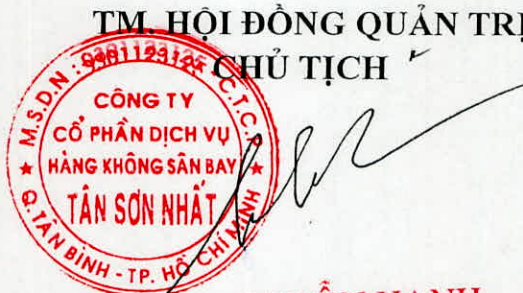 TM. HỘI ĐỒNG QUẢN TRỊ
CHỦ TỊCH
M.S.D.N : - C.T.C.P
CÔNG TY
CỔ PHẦN DỊCH VỤ
HÀNG KHÔNG SÂN BAY
TÂN SƠN NHẤT
Q. TÂN BÌNH - TP. HỒ CHÍ MINH